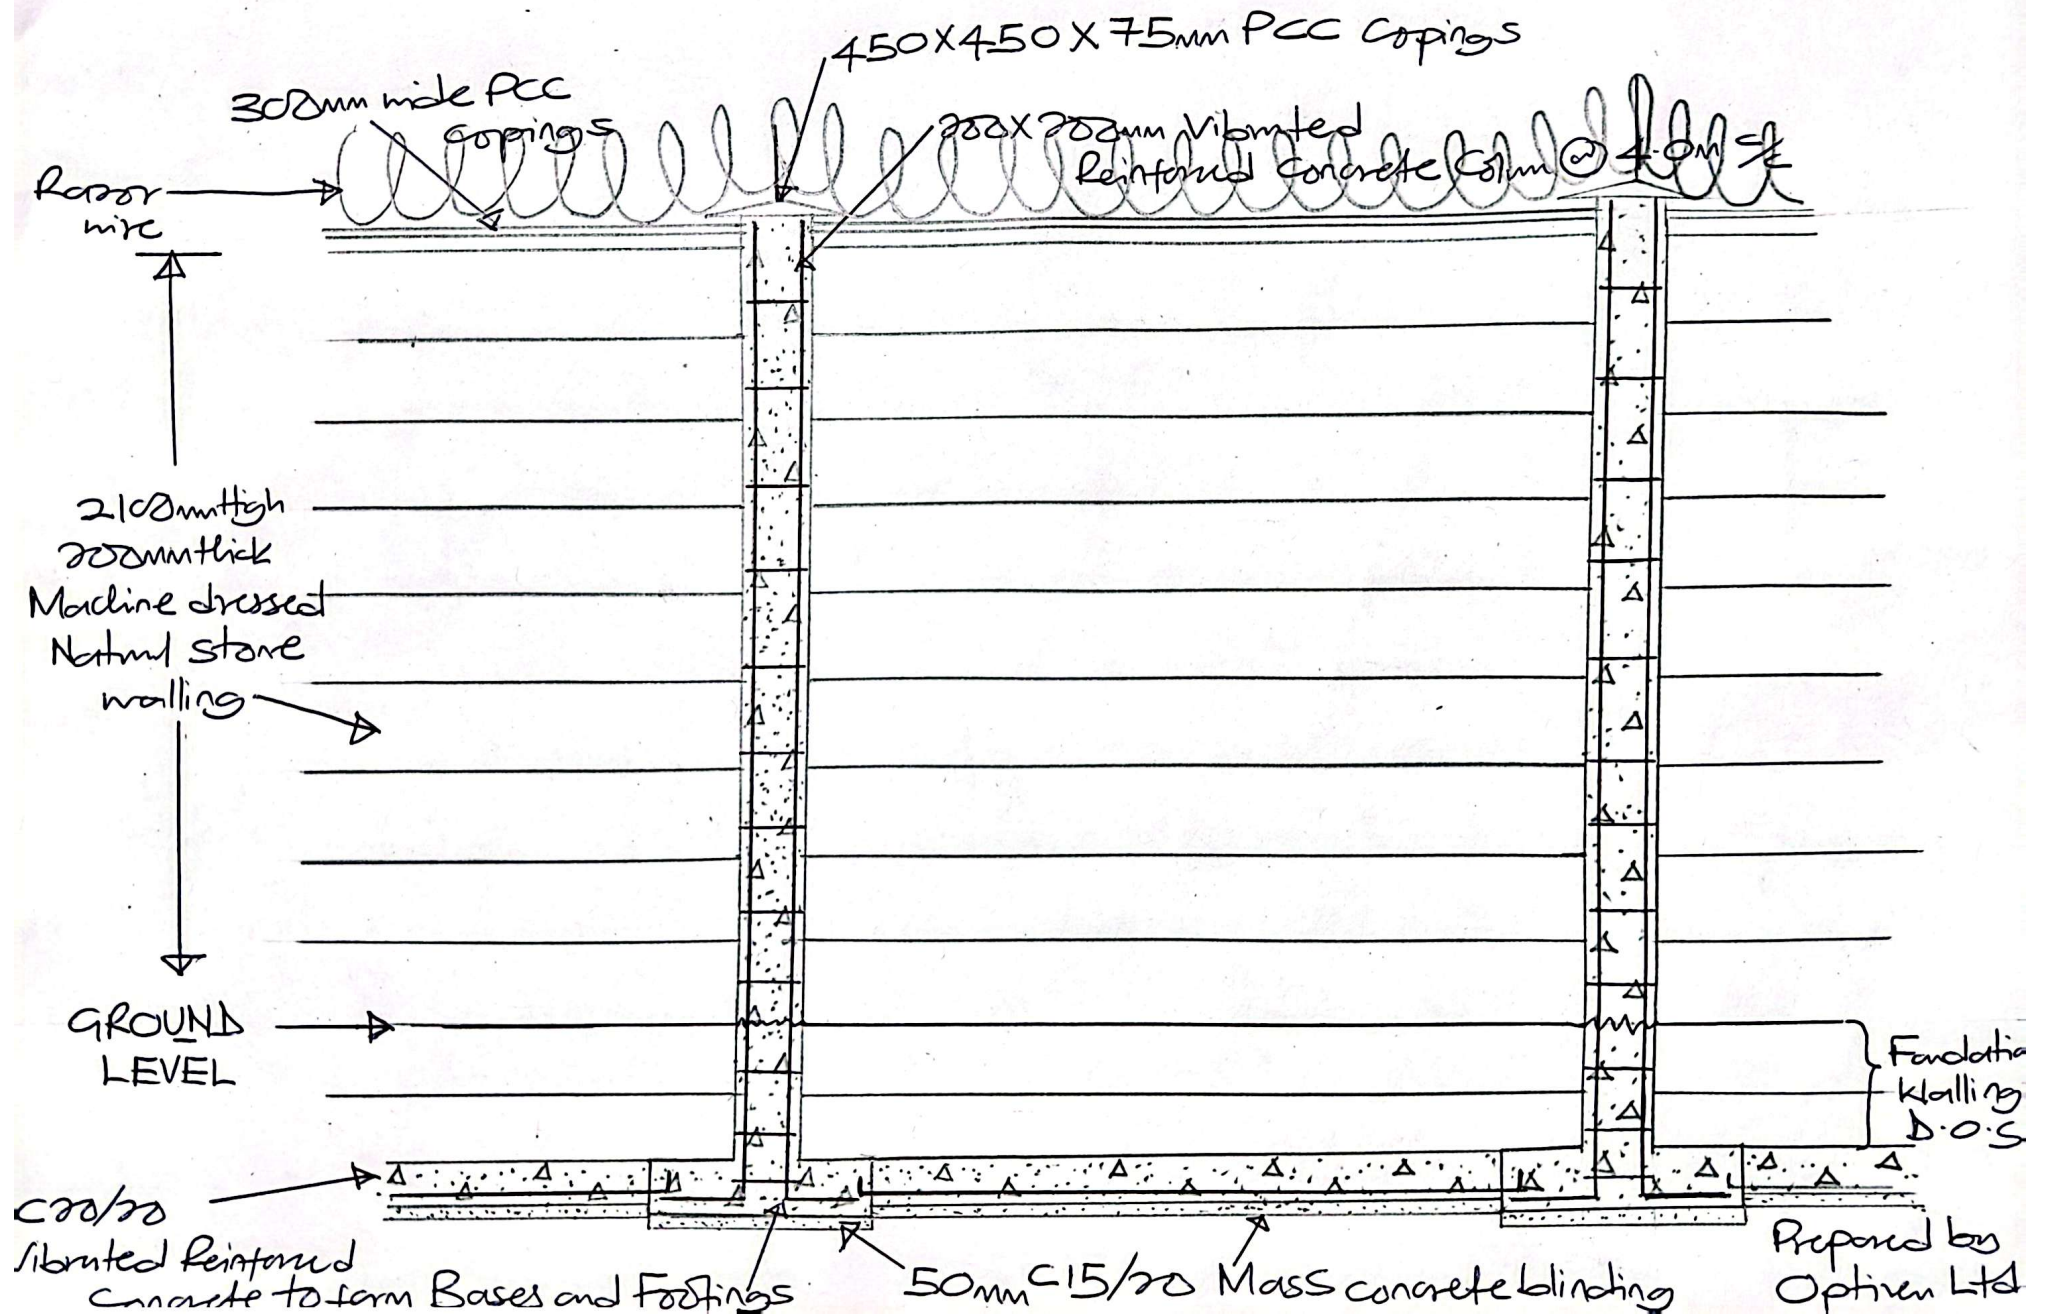 450X450X75mm PCC Copings
300mm wide PCC
Copings
200X200mm Vibrated
Reinforced Concrete Colum @ 4.0m c/c
Razor
wire
2100mm High
200mm thick
Machine dressed
Natural stone
walling
GROUND
LEVEL
Foundatio
Walling
D.O.S
C20/20
Vibrated Reinforced
Concrete to form Bases and Footings
50mm C15/20 Mass concrete blinding
Prepared by
Optiven Ltd